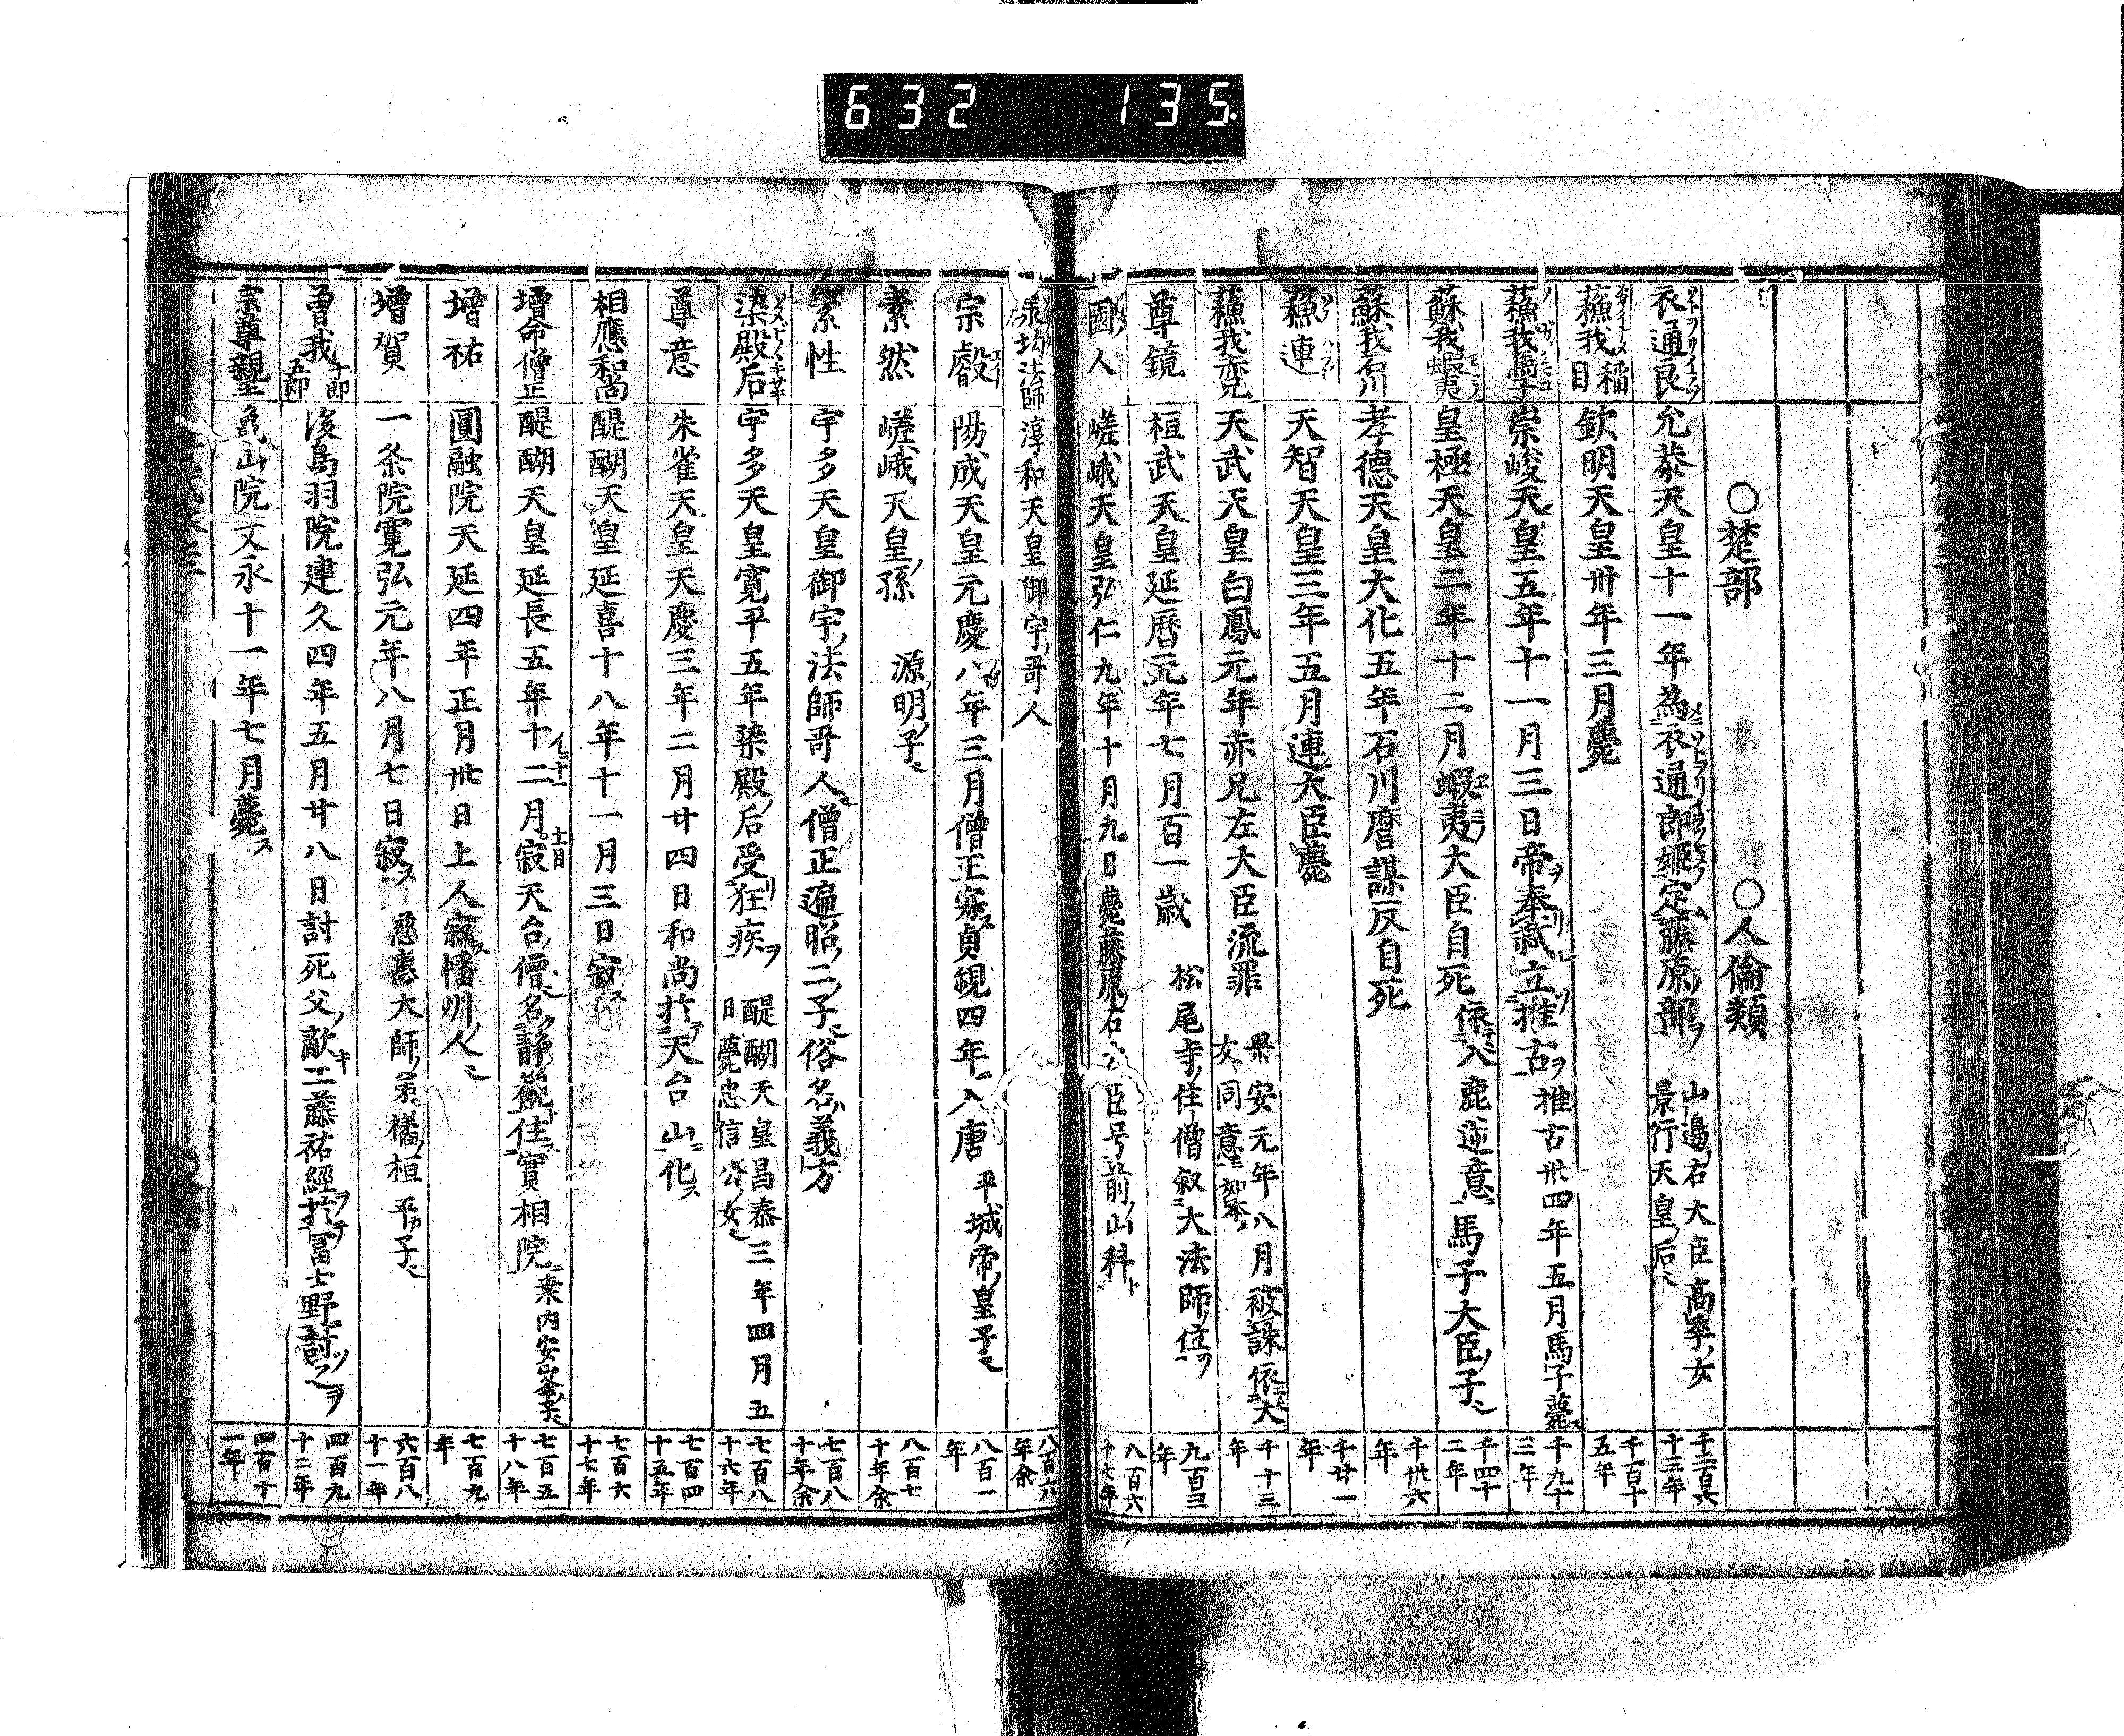 632 135.
○楚部 ○人倫類
衣通良 允恭天皇十一年為衣通郎姫定藤原部ヲ 山邉右大臣高峯女 景行天皇后 千二百六十三年
蘓我稲目 欽明天皇卅年三月薨 千百十五年
蘓我馬子 崇峻天皇五年十一月三日帝奉弑立推古ヲ 推古卅四年五月馬子薨ス 千九十三年
蘇我蝦夷 皇極天皇二年十二月蝦夷大臣自死 依入鹿逆意馬子大臣ノ子 千四十二年
蘇我石川 孝德天皇大化五年石川麿謀反自死 千卅六年
蘓連 天智天皇三年五月連大臣薨 千廿一年
蘓我赤兄 天武天皇白鳳元年赤兄左大臣流罪 果安元年八月被誅依大友同意 千十三年
尊鏡 桓武天皇延暦元年七月百一歳 松尾寺住僧叙大法師ノ位ヲ 九百三年
園人 嵯峨天皇弘仁九年十月九日薨藤原右大臣号前山科ト 八百六十七年
法師 淳和天皇御宇哥人 八百六年余
宗叡 陽成天皇元慶八年三月僧正寂ス貞観四年入唐 平城帝皇子 八百一年
素然 嵯峨天皇孫 源明子 八百七十年余
素性 宇多天皇御宇法師哥人僧正遍昭二子俗名義方 七百八十年余
染殿后 宇多天皇寛平五年染殿后受狂疾ヲ 醍醐天皇昌泰三年四月五日薨忠信公女 七百八十六年
尊意 朱雀天皇天慶三年二月廿四日和尚於天台山化ス 七百四十五年
相應和尚 醍醐天皇延喜十八年十一月三日寂ス 七百六十七年
増命僧正 醍醐天皇延長五年十二月寂天台僧名静観住實相院 桒内安峯子 七百五十八年
増祐 圓融院天延四年正月卅日上人寂ス幡州人 七百九年
増賀 一条院寛弘元年八月七日寂ス 慈惠大師弟橘桓平子 六百八十一年
曽我十郎五郎 後鳥羽院建久四年五月廿八日討死父ノ敵工藤祐經於冨士野討ツ 四百九十二年
宗尊親王 亀山院文永十一年七月薨ス 四百十一年